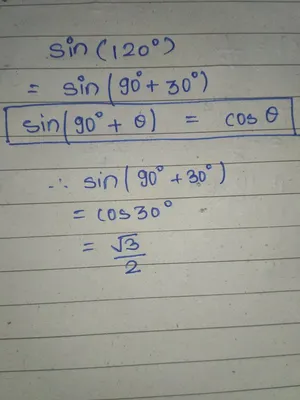 sin(120°)
= sin(90°+30°)
sin(90°+θ) = cosθ
∴ sin(90°+30°)
= cos30°
= √3/2